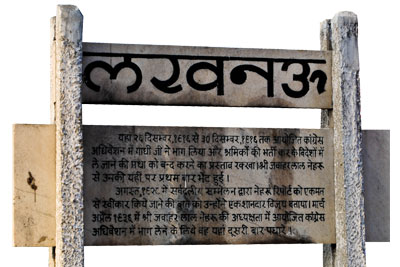 लखनऊ
यहां २६ दिसम्बर,१९१६ से ३० दिसम्बर,१९१६ तक आयोजित कांग्रेस
अधिवेशन में गांधी जी ने भाग लिया और श्रमिकों की भर्ती कर के विदेशों में
ले जाने की प्रथा को बन्द करने का प्रस्ताव रक्खा। श्री जवाहर लाल नेहरू
से उनकी यहीं पर प्रथम बार भेंट हुई।
अगस्त,१९२८ में सर्वदलीय सम्मेलन द्वारा नेहरू रिपोर्ट को एकमत
से स्वीकार किये जाने की बात को उन्होंने एक शानदार विजय बताया। मार्च
अप्रैल १९३६ में श्री जवाहर लाल नेहरू की अध्यक्षता में आयोजित कांग्रेस
अधिवेशन में भाग लेने के लिये वह यहां दूसरी बार पधारे।